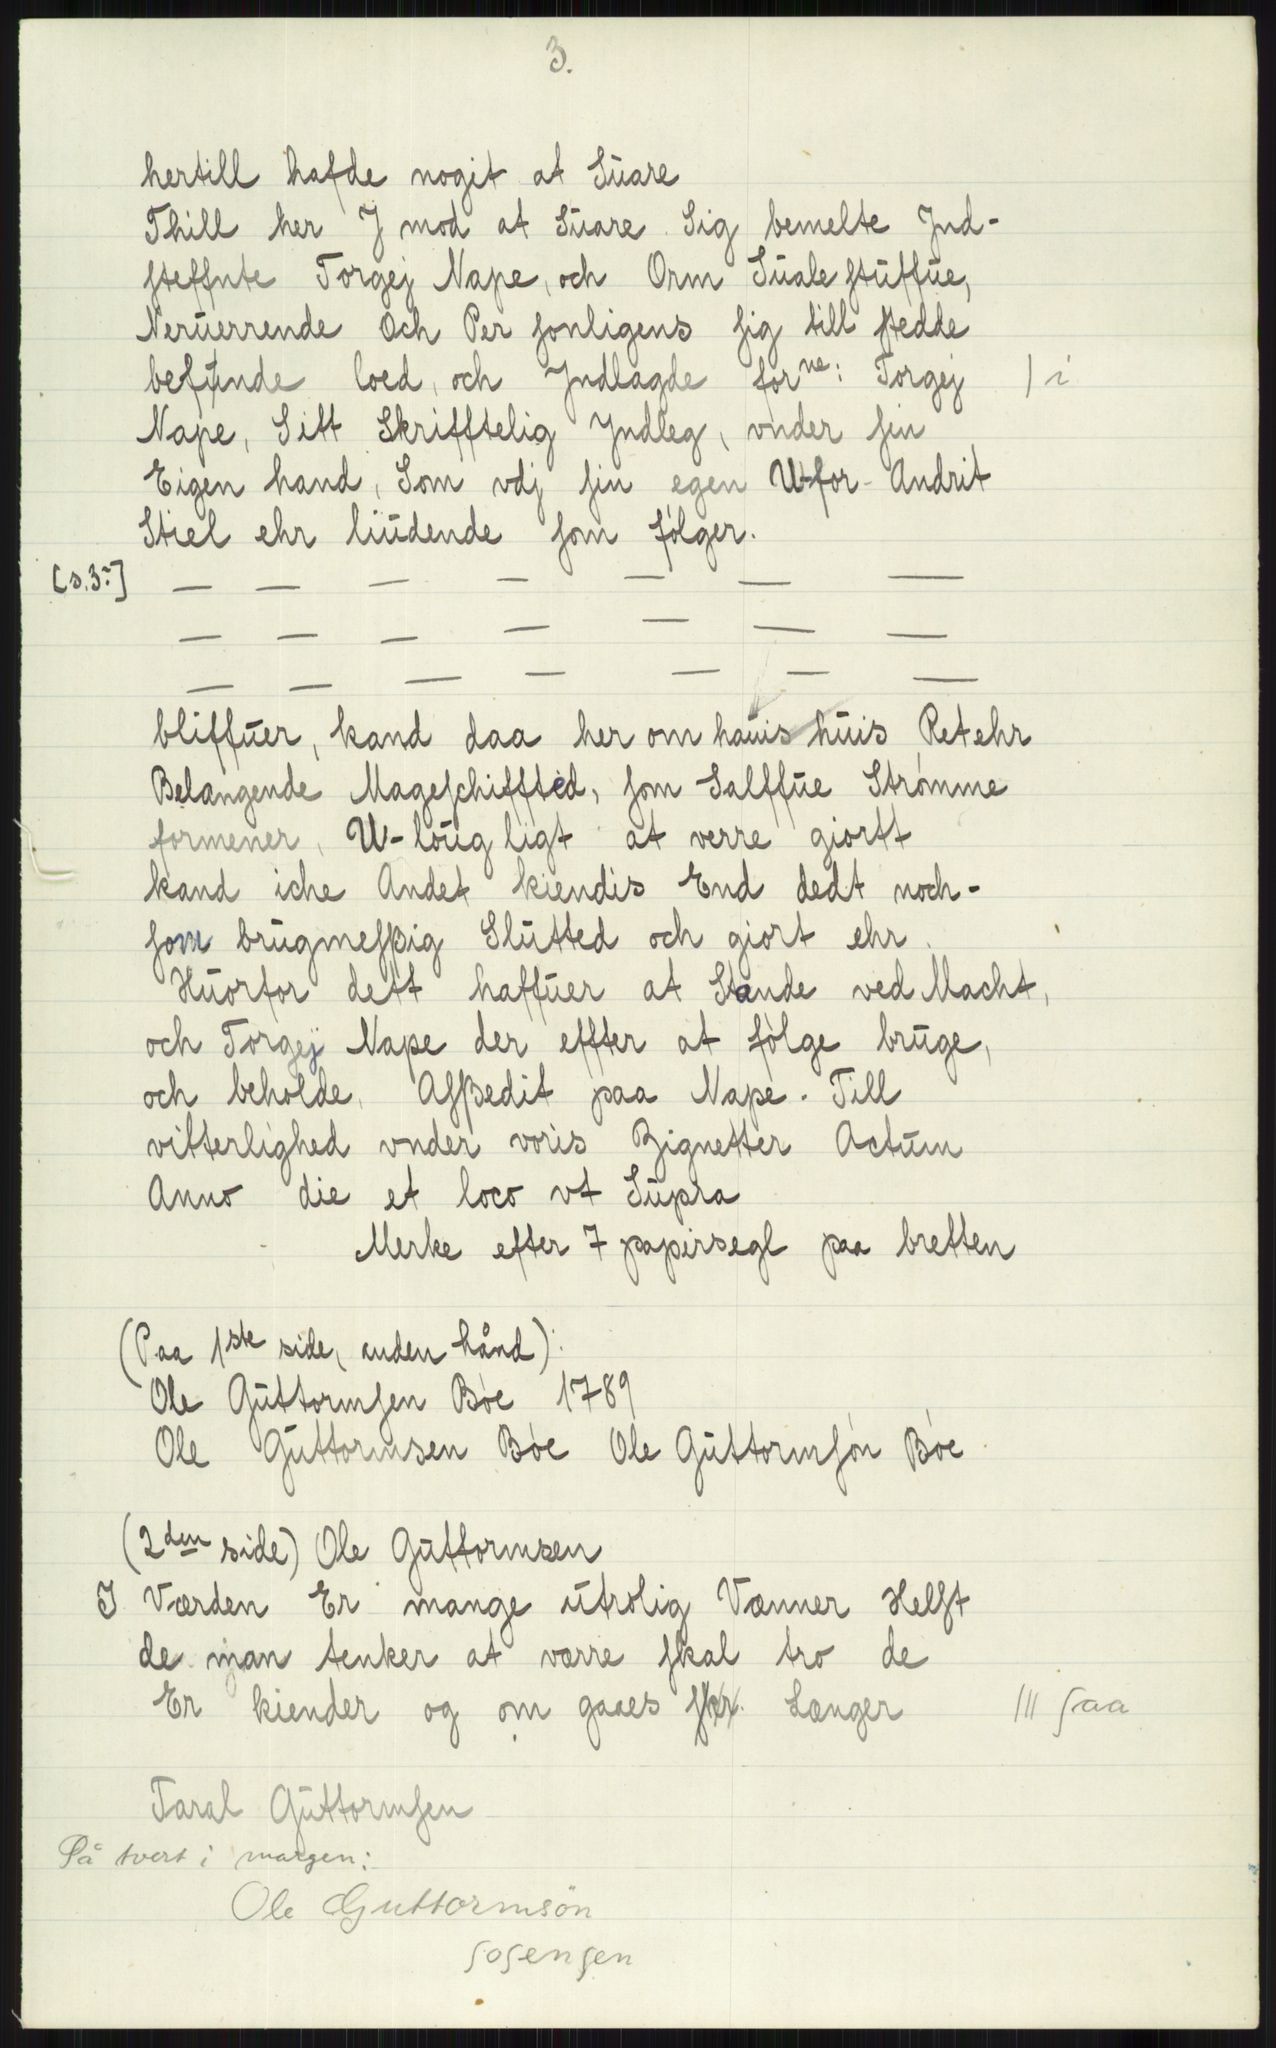 3.
hertill hafde nogit at Suare
Thill her J mod at Suare Sig bemelte Jnd-
steffnte Torgej Nape, och Orm Sualestuffue,
Neruerrende Och Per sonligens sig till stedde
befunde loed, och Jndlagde forne: Torgej | i
Nape, Sitt Skrifftelig Jndleg, vnder sin
Eigen hand, Som vdj sin egen U-for-Andrit
Stiel ehr liudende som følger.
[s.3:] — — — — — — —
— — — — — — —
— — — — — — —
bliffuer, kand daa her om hauis huis Ret ehr
Belangende Mageschiffted, som Salffue Strømme
formener, U-loug ligt at verre giortt
kand iche Andet kiendis End dedt noch-
som brugmesßig Slutted och giort ehr.
Huorfor dett haffuer at Stande ved Macht,
och Torgej Nape der effter at følge bruge,
och beholde, Afsßedit paa Nape. Till
vitterlighed vnder voris Zignetter Actum
Anno die et loco vt Supra
Merke efter 7 papirsegl paa bretten
(Paa 1ste side, anden hånd):
Ole Guttormsen Bøe 1789
Ole Guttormsen Bøe Ole Guttormsøn Bøe
(2den side) Ole Guttormsen
I Værden Er mange utrolig Vænner Helst
de man tenker at værre skal tro de
Er kiender og om gaaes Længer ||| saa
Taral Guttormsen
På tvert i margen:
Ole Guttormsön
sosensen